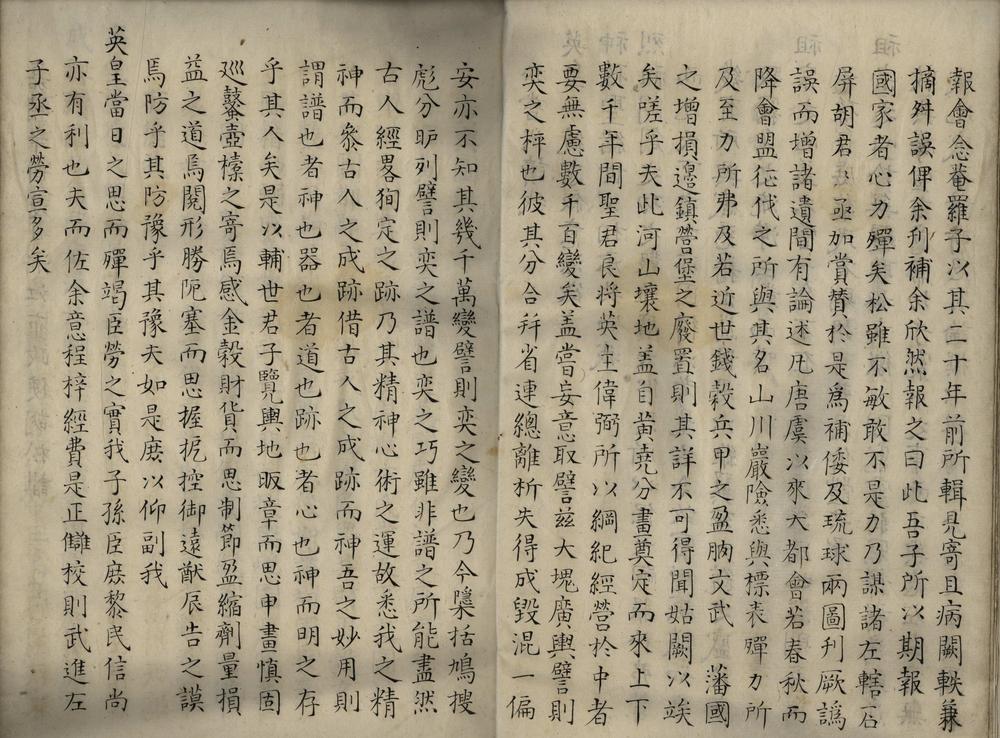 報會念菴羅子以其二十年前所輯見寄且病闕軼兼
摘舛誤俾余刋補余欣然報之曰此吾子所以期報
國家者心力殫矣松雖不敏敢不是力乃謀諸左轄石
屏胡君君亟加賞賛於是爲補倭及琉球兩圖刋厥譌
誤而增諸遺間有論述凡唐虞以來大都會若春秋而
降會盟征伐之所與其名山川巖險悉與標表殫力所
及至力所弗及若近世錢榖兵甲之盈朒文武 藩國
之增損邉鎮營堡之廢置則其詳不可得聞姑闕以竢
矣嗟乎夫此河山壤地盖自黄堯分畫奠定而來上下
數千年間聖君良將英主偉弼所以綱紀經營於中者
要無慮數千百變矣盖嘗妄意取譬兹大塊廣輿譬則
奕之枰也彼其分合幷省連總離析失得成毀混一偏
安亦不知其幾千萬變譬則奕之變也乃今隱括鳩搜
彪分昈列譬則奕之譜也奕之巧雖非譜之所能盡然
古人經畧狥定之跡乃其精神心術之運故悉我之精
神而叅古人之成跡借古人之成跡而神吾之妙用則
謂譜也者神也器也者道也跡也者心也神而明之存
乎其人矣是以輔世君子覽輿地昄章而思申畫慎固
廵鼇壺檺之寄焉感金榖財貨而思制節盈縮劑量損
益之道焉閱形勝阨塞而思握扼控御逺猷辰告之謨
焉防乎其防豫乎其豫夫如是庶以仰副我
英皇當日之思而殫竭臣勞之實我子孫臣庶黎民信尚
亦有利也夫而佐余意程梓經費是正讎校則武進左
子丞之勞宣多矣